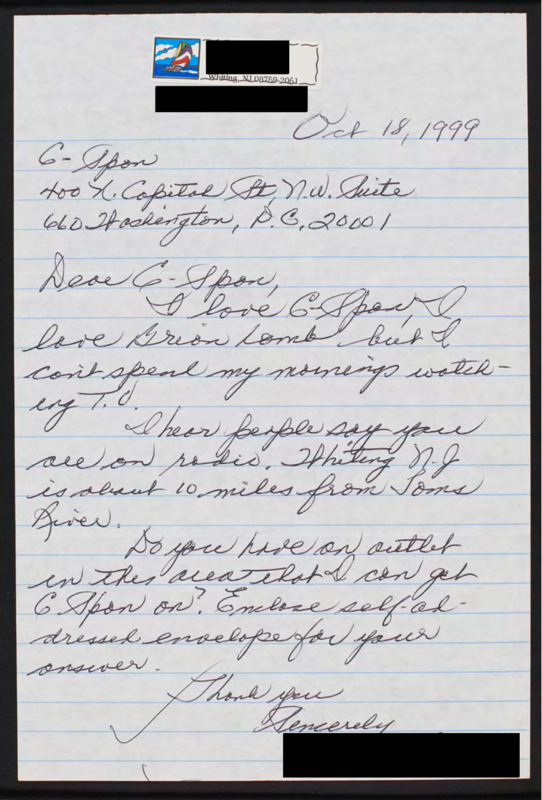 Whiting, NJ 08759-2051
Oct 18, 1999
C-Span
400 N. Capital St, N.W. Suite
660 Washington, D.C. 20001
Dear C-Span,
I love C-Span, I
love Brian Lamb but I
can't spend my mornings watch-
ing T.V.
I hear people say you
are on radio. Whiting N.J
is about 10 miles from Toms
River.
Do you have an outlet
in this area that I can get
C Span on? Enclose self-ad-
dressed envelope for your
answer.
Thank you
Sincerely